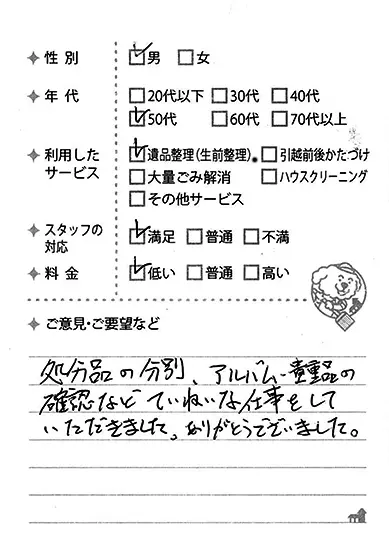 性別 男 女
年代 20代以下 30代 40代
50代 60代 70代以上
利用した 遺品整理(生前整理) 引越前後かたづけ
サービス 大量ごみ解消 ハウスクリーニング
その他サービス
スタッフの
対応 満足 普通 不満
料金 低い 普通 高い
ご意見・ご要望など
処分品の分別、アルバム・貴重品の
確認など ていねいな仕事をして
いただきました。ありがとうございました。